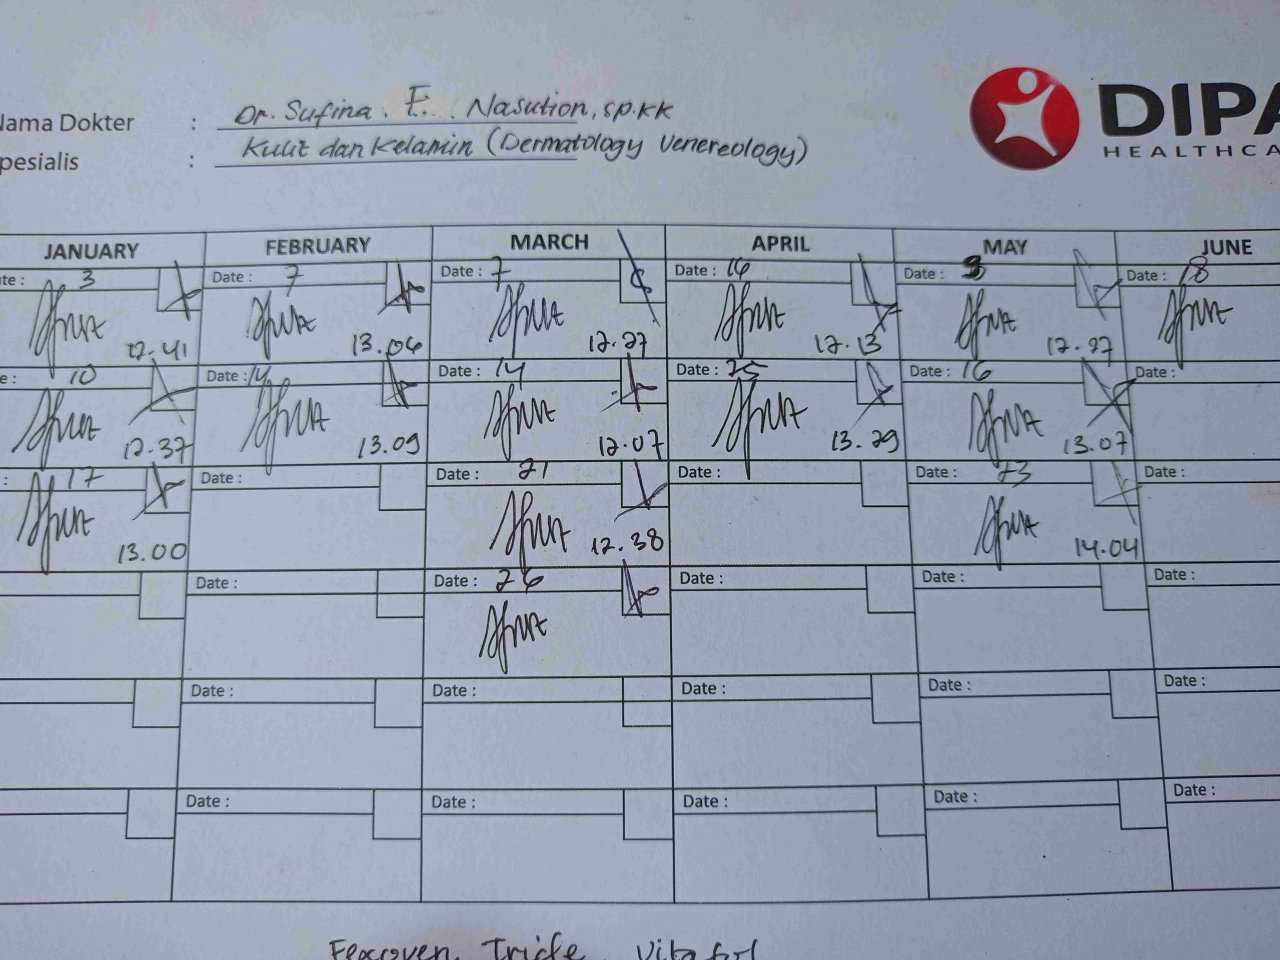 Nama Dokter : Dr. Sufina. F. Nasution, sp.KK
Spesialis : Kulit dan Kelamin (Dermatology Venereology)
DIPA
HEALTHCA
JANUARY FEBRUARY MARCH APRIL MAY JUNE
te : 3 Date : 7 Date : 7 Date : 16 Date : Date : 18
12.41 13.06 12.27 12.13 12.27
e : 10 Date : 14 Date : 14 Date : 25 Date : 16 Date :
12.37 13.09 12.07 13.29 13.07
: 17 Date : Date : 21 Date : Date : 23 Date :
13.00 12.38 14.04
Date : Date : 26 Date : Date : Date :
Date : Date : Date : Date : Date :
Date : Date : Date : Date : Date :